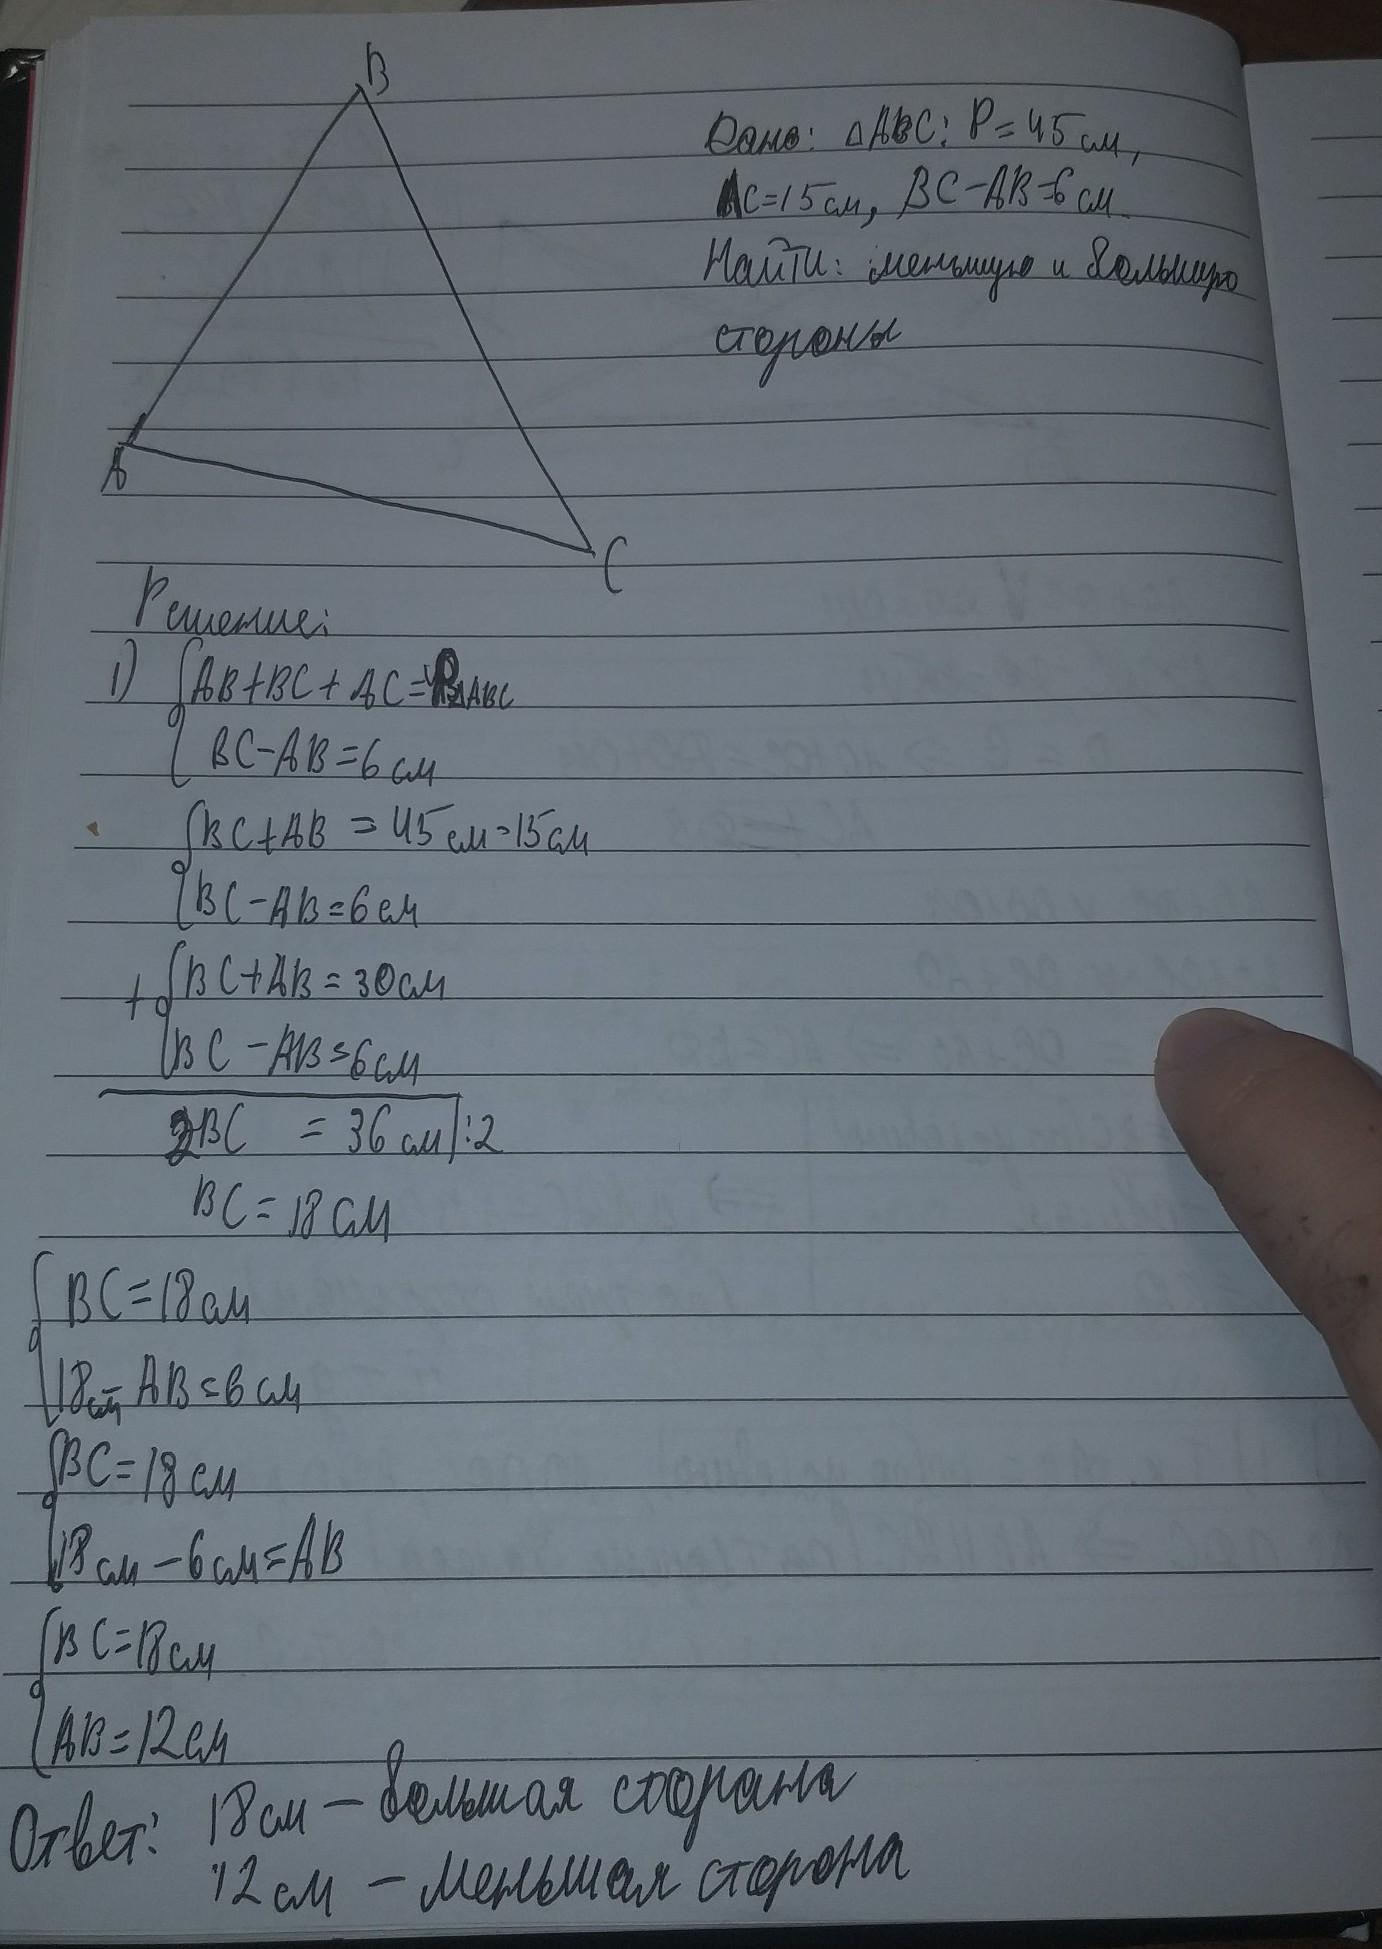 B
Дано: △ABC: P=45см,
AC=15см, BC-AB=6см
Найти: меньшую и большую
стороны
A
C
Решение:
1) {AB+BC+AC=P△ABC
BC-AB=6см
{BC+AB=45см-15см
BC-AB=6см
+ {BC+AB=30см
BC-AB=6см
2BC = 36см |:2
BC=18см
{BC=18см
18см-AB=6см
{BC=18см
18см-6см=AB
{BC=18см
AB=12см
Ответ: 18см - большая сторана
12см - меньшая сторона